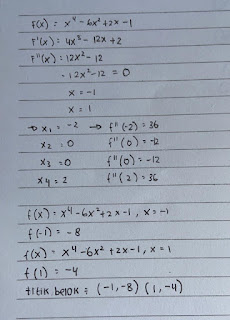 F(x) = x⁴ - 6x² + 2x - 1
F'(x) = 4x³ - 12x + 2
F''(x) = 12x² - 12
= 12x² - 12 = 0
x = -1
x = 1
→ x₁ = -2 → f''(-2) = 36
x₂ = 0 f''(0) = -12
x₃ = 0 f''(0) = -12
x₄ = 2 f''(2) = 36
f(x) = x⁴ - 6x² + 2x - 1, x = -1
f(-1) = -8
f(x) = x⁴ - 6x² + 2x - 1, x = 1
f(1) = -4
titik belok = (-1,-8) (1,-4)